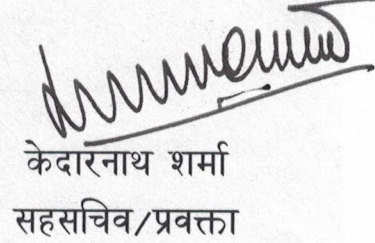 केदारनाथ शर्मा
सहसचिव/प्रवक्ता